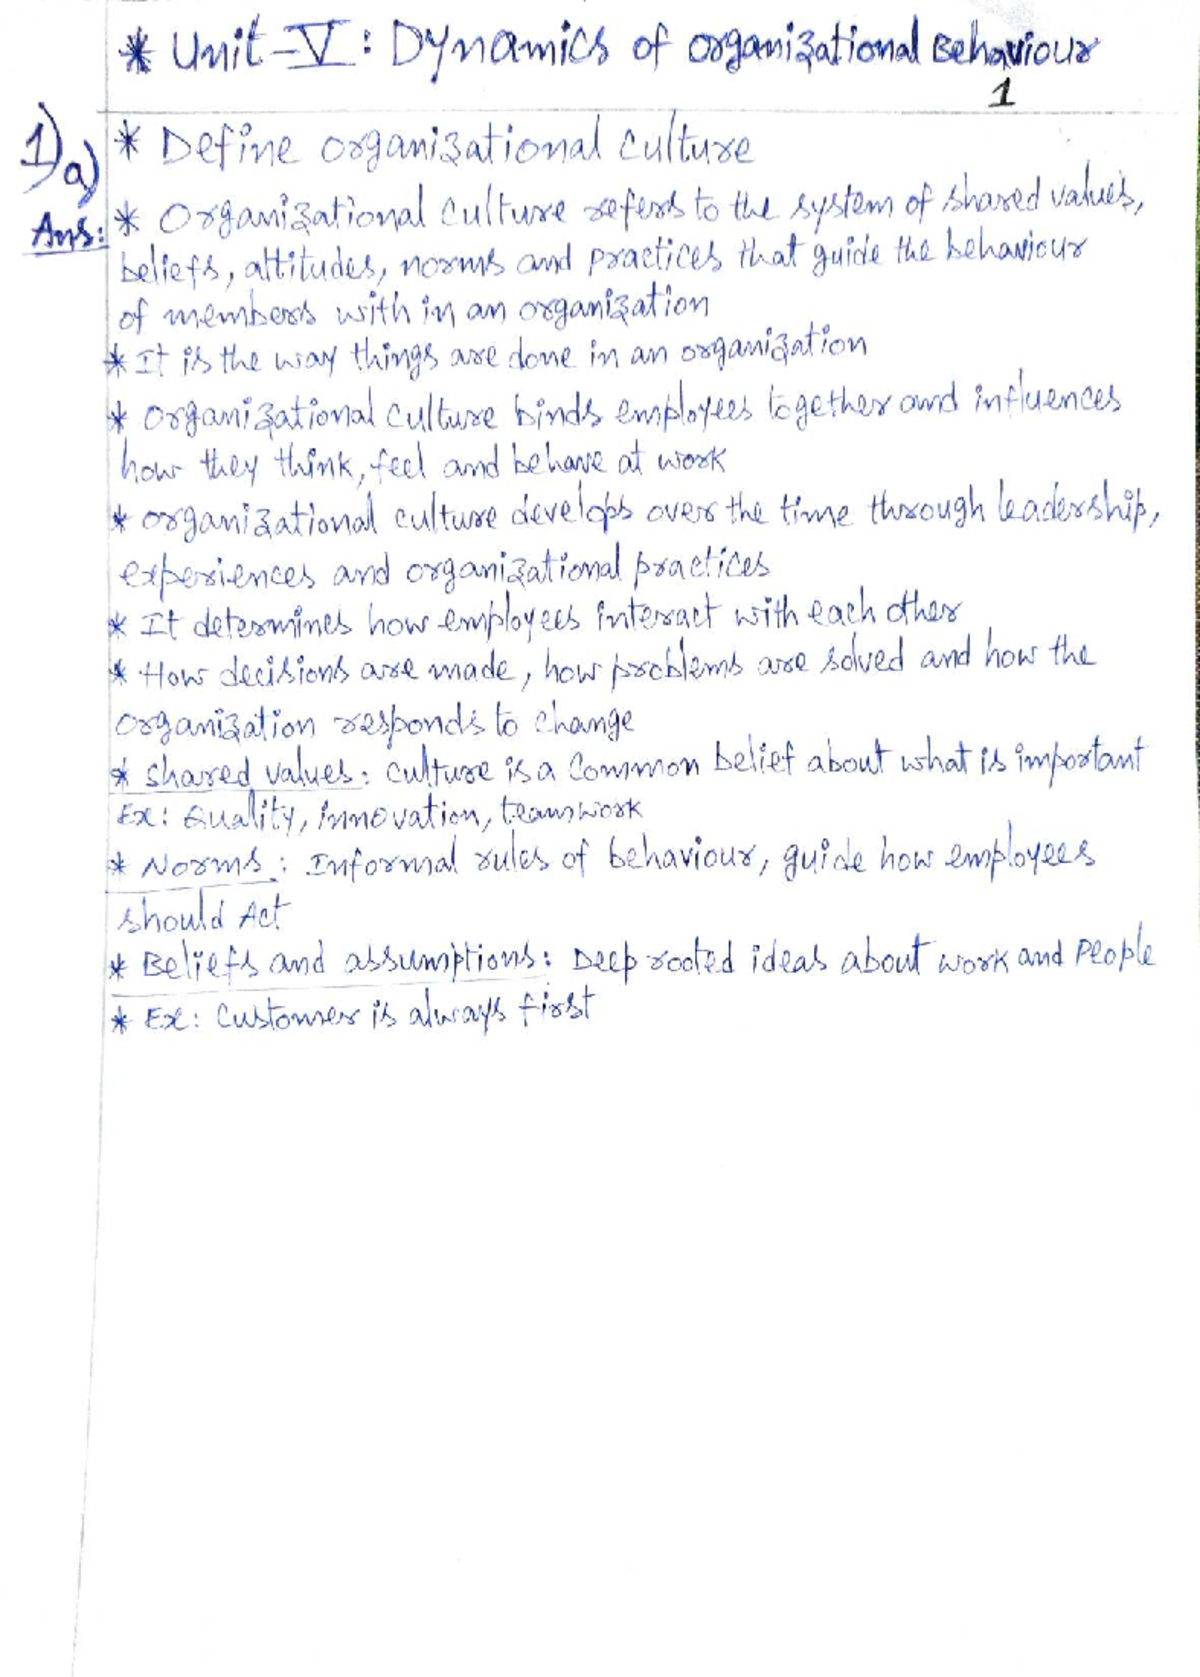 * Unit-V: Dynamics of organizational Behaviour
1
1) a) * Define organizational culture
Ans: * Organizational culture refers to the system of shared values,
beliefs, attitudes, norms and practices that guide the behaviour
of members with in an organization
* It is the way things are done in an organization
* organizational culture binds employees together and influences
how they think, feel and behave at work
* organizational culture develops over the time through leadership,
experiences and organizational practices
* It determines how employees interact with each other
* How decisions are made, how problems are solved and how the
organization responds to change
* shared values: culture is a common belief about what is important
Ex: Quality, innovation, teamwork
* Norms: Informal rules of behaviour, guide how employees
should Act
* Beliefs and assumptions: Deep rooted ideas about work and People
* Ex: Customer is always first